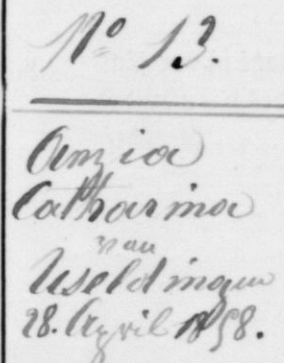 Nº 13.
Amzia
Catharina
van
Useldingen
28. April 1858.